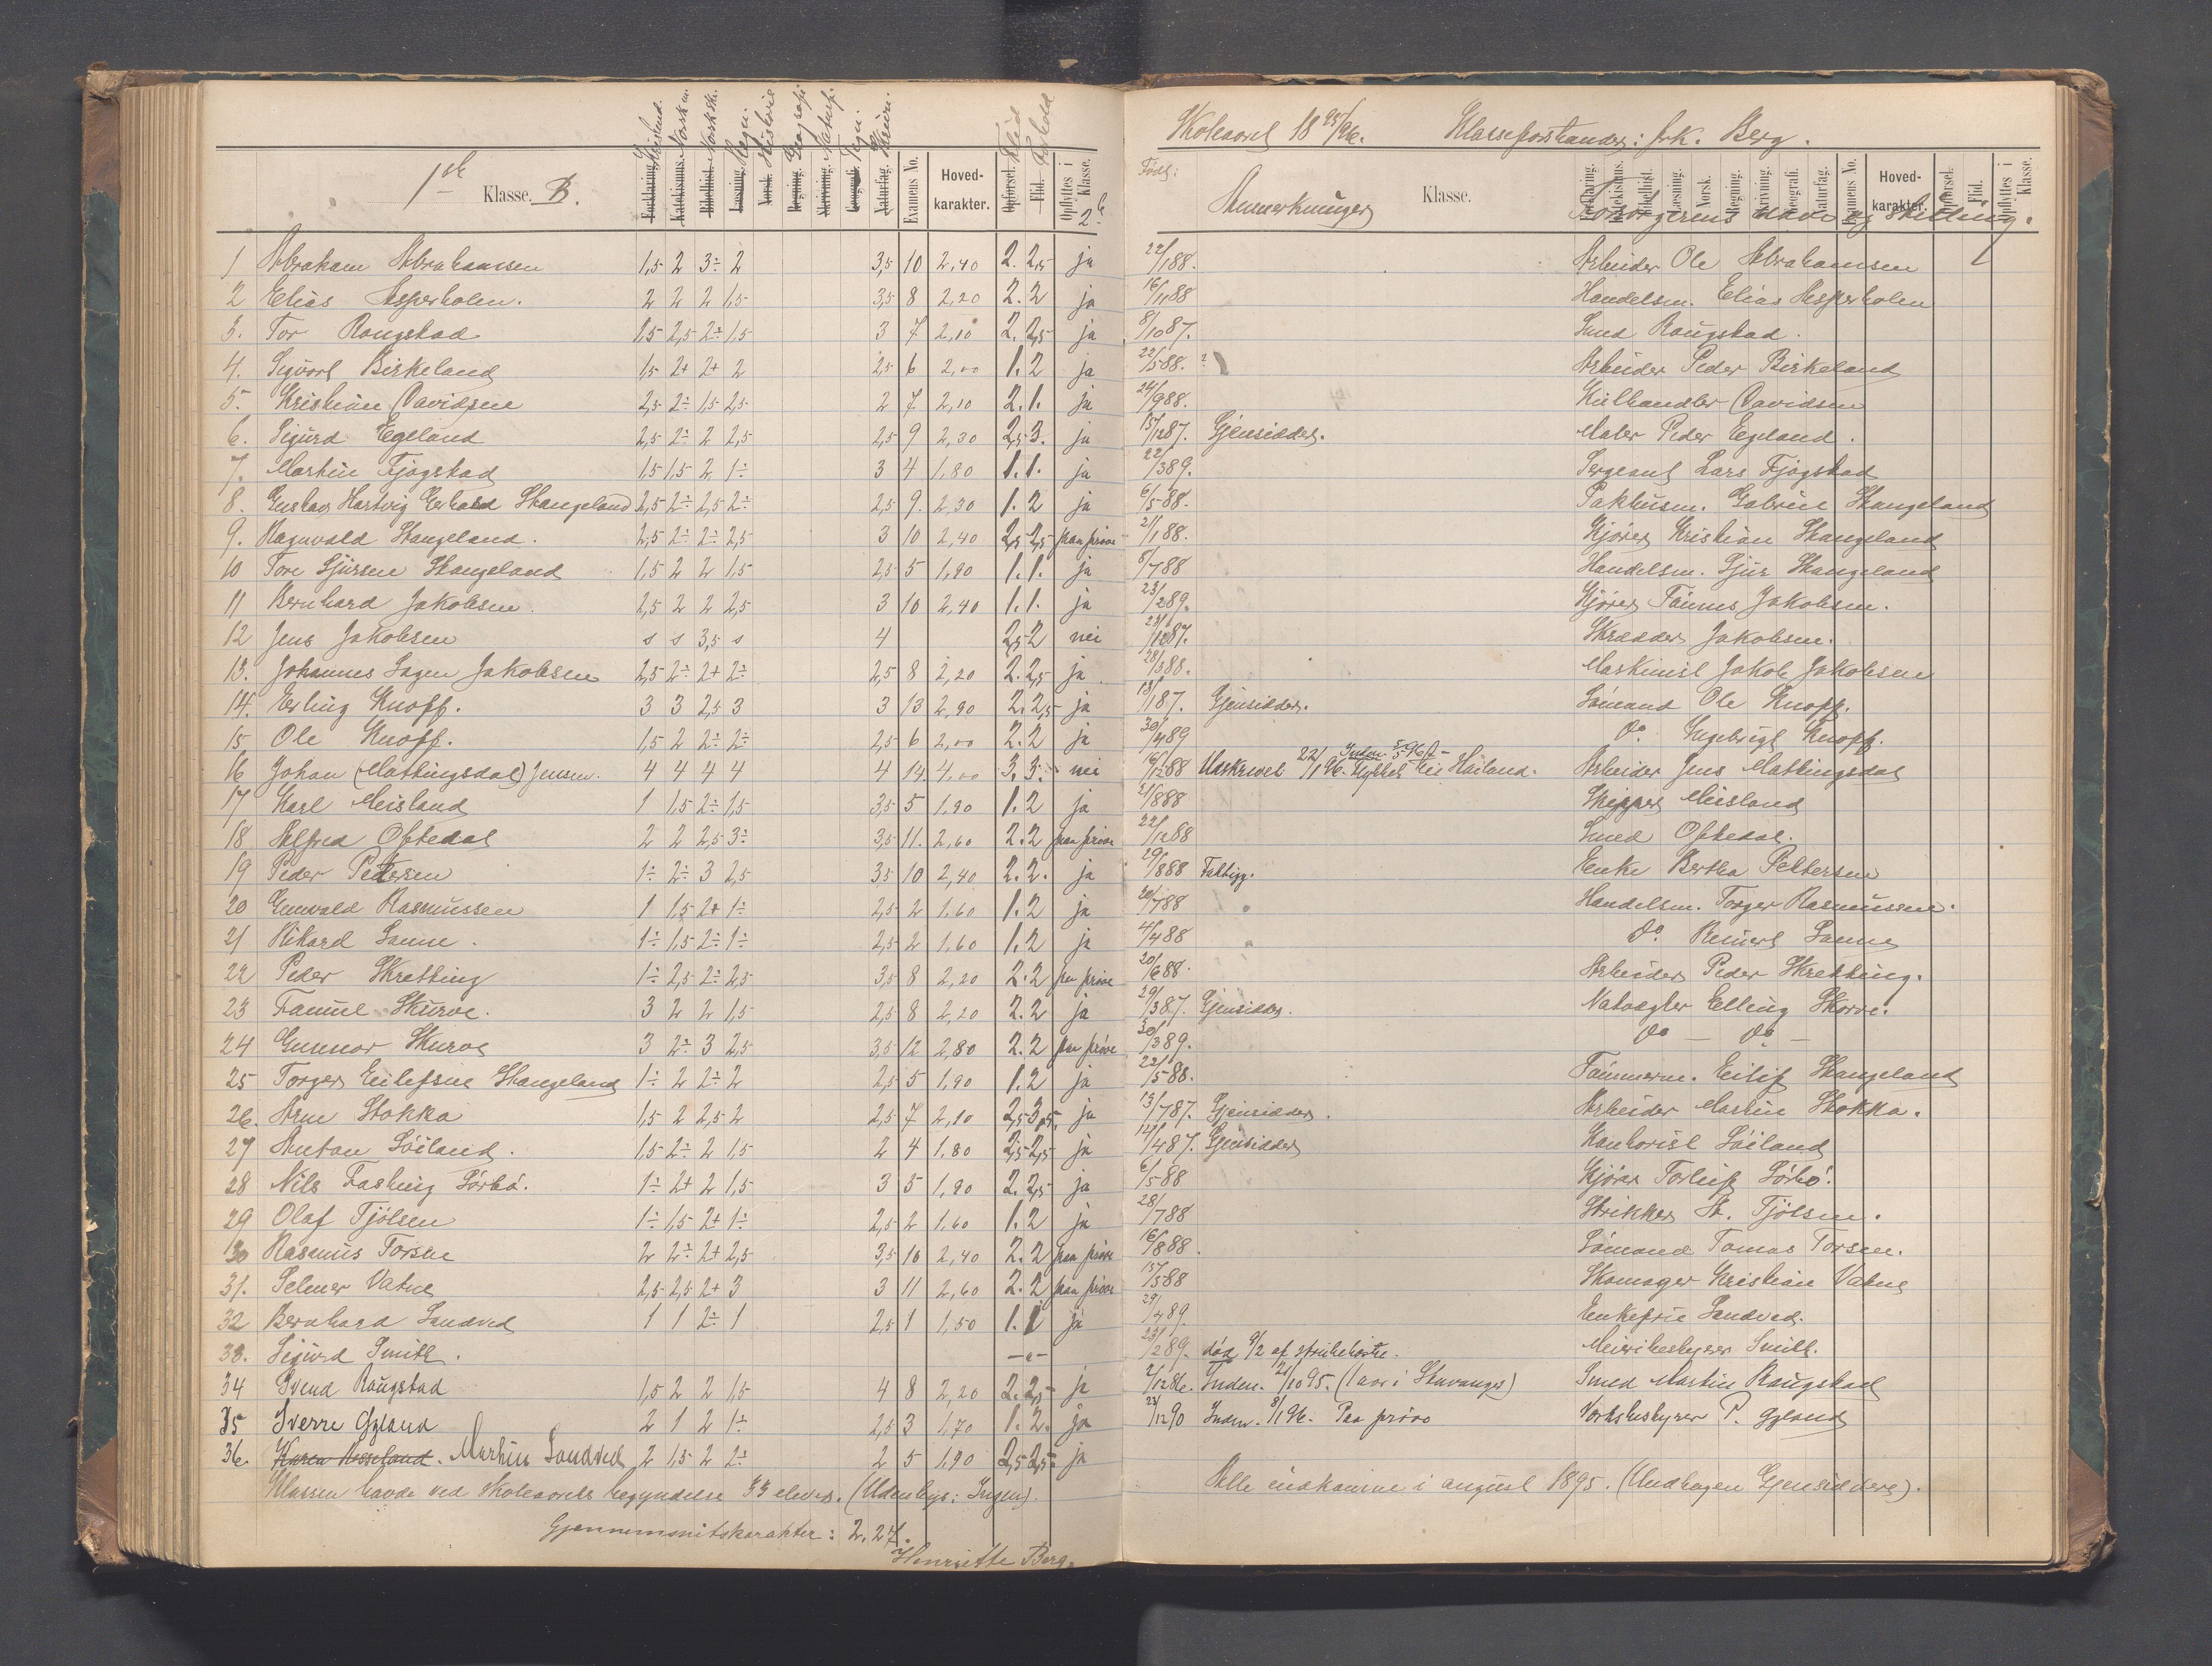 1ste Klasse. B.
Forklaring. Katekismus. Bibelhist. Læsning. Norsk. Regning. Skrivning. Geografi. Naturfag. Examens No. Hovedkarakter. Opførsel. Flid. Opflyttes i Klasse. 2
Kristend. Norsk m. Norsk sk. Regn. Historie Geografi Naturf. Tegn. Skrivn. Flid Forhold
1 Abraham Abrahamsen 1,5 2 3÷ 2 3,5 10 2,40 2. 2,5 ja
2 Elias Asperholen. 2 2 2 1,5 3,5 8 2,20 2. 2 ja
3. Tor Raugstad 1,5 2,5 2÷ 1,5 3 7 2,10 2. 2,5 ja
4. Sigvart Birkeland 1,5 2+ 2+ 2 2,5 6 2,00 1. 2 ja
5. Kristian Davidsen 2,5 2÷ 1,5 2,5 2 7 2,10 2. 1. ja
6. Sigurd Egeland 2,5 2÷ 2 2,5 2,5 9 2,30 2,5 3. ja
7. Martin Fjogstad 1,5 1,5 2 1÷ 3 4 1,80 1. 1. ja
8. Gustav Hartvig Gerhard Skangeland 2,5 2÷ 2,5 2÷ 2,5 9. 2,30 1. 2 ja
9. Ragnvald Skangeland. 2,5 2÷ 2÷ 2,5 3 10 2,40 2,5 2,5 paa prøve
10 Tore Sjursen Skangeland 1,5 2 2 1,5 2,5 5 1,90 1. 1. ja
11 Bernhard Jakobsen. 2,5 2 2 2,5 3 10 2,40 1. 1. ja
12 Jens Jakobsen s s 3,5 s 4 2,5 2 nei
13. Johannes Sagen Jakobsen 2,5 2÷ 2+ 2÷ 2,5 8 2,20 2. 2,5 ja
14. Erling Knoff. 3 3 2,5 3 3 13 2,90 2. 2,5 ja
15 Ole Knoff. 1,5 2 2÷ 2÷ 2,5 6 2,00 2. 2 ja
16 Johan (Mattingsdal) Jensen. 4 4 4 4 4 14 4,00 3. 3. nei
17 Karl Meisland 1 1,5 2÷ 1,5 3,5 5 1,90 1. 2 ja
18 Alfred Oftedal 2 2 2,5 3÷ 3,5 11. 2,60 2. 2 paa prøve
19 Peder Petersen 1÷ 2÷ 3 2,5 3,5 10 2,40 2. 2. ja
20 Gunvald Rasmussen 1 1,5 2+ 1÷ 2,5 2 1,60 1. 2 ja
21 Rikard Sanne. 1÷ 1,5 2÷ 1÷ 2,5 2 1,60 1. 2 ja
22 Peder Skretting 1÷ 2,5 2÷ 2,5 3,5 8 2,20 2. 2 paa prøve
23 Samuel Skurve. 3 2 2 1,5 2,5 8 2,20 2. 2 ja
24 Gunnar Skurve 3 2÷ 3 2,5 3,5 12 2,80 2. 2 paa prøve
25 Torger Eilefsen Skangeland 1÷ 2 2÷ 2 2,5 5 1,90 1. 2 ja
26. Arne Stokka 1,5 2 2,5 2 2,5 7 2,10 2,5 3,5. ja
27 Anton Söiland. 1,5 2÷ 2 1,5 2 4 1,80 2,5 2,5 ja
28 Nils Fasting Sörbö. 1÷ 2+ 2 1,5 3 5 1,90 2. 2,5 ja
29 Olaf Tjölsen 1÷ 1,5 2+ 1÷ 2,5 2 1,60 1. 2 ja
30 Rasmus Torsen 2 2÷ 2+ 2,5 3,5 10 2,40 2. 2 paa prøve
31. Selmer Vatne 2,5 2,5 2+ 3 3 11 2,60 2. 2 paa prøve
32 Bernhard Sandved 1 1 2÷ 1 2,5 1 1,50 1. 1 ja
33. Sigurd Smith. —"—
34 Svend Raugstad 1,5 2 2 1,5 4 8 2,20 2. 2,5 ja
35 Sverre Gyland 2 1 2 1÷ 2,5 3 1,70 1. 2. ja
36. Karen Nesseland. Martin Sandved 2 1,5 2 2÷ 2 5 1,90 2,5 2,5. ja
Klassen havde ved Skoleaarets begyndelse 33 elever. (Udenbys: Ingen).
Gjennemsnitskarakter: 2,27.
Henriette Berg.
Skoleaaret 1895/96. Klasseforstander: frk. Berg.
Født: Anmerkninger Klasse. Forsørgerens navn og stilling.
Forklaring. Katekismus. Bibelhist. Læsning. Norsk. Regning. Skrivning. Geografi. Naturfag. Examens No. Hovedkarakter. Opførsel. Flid. Opflyttes i Klasse.
22/1 88. Arbeider Ole Abrahamsen
16/11 88 Handelsm. Elias Asperholen
8/10 87. Smed Raugstad.
22/5 88. ? Arbeider Peder Birkeland
24/9 88. Kulhandler Davidsen
15/12 87. Gjensidder. Maler Peder Egeland.
22/3 89. Sergeant Lars Fjogstad
6/5 88. Pakhusm. Gabriel Skangeland
21/1 88. Kjører Kristian Skangeland
8/7 88 Handelsm. Sjur Skangeland
23/2 89. Kjører Tønnes Jakobsen.
23/12 87. Skrædder Jakobsen.
28/3 88. Maskinist Jakob Jakobsen
13/1 87. Gjensidder. Sömand Ole Knoff.
30/4 89 Do. Engebrigt Knoff.
16/12 88 Udskrevet 22/1 96. Flyttet til Høiland. Arbeider Jens Mattingsdal
21/8 88 Skipper Meisland
22/12 88 Smed Oftedal.
29/8 88 Fattigg. Enke Bertha Pettersen
20/7 88 Handelsm. Torger Rasmussen.
4/4 88 Do. Reinert Sanne
20/6 88. Arbeider Peder Skretting.
29/3 87. Gjensidder. Natvagter Elling Skorve.
30/3 89. Do — Do —
22/5 88. Tømmerm. Eilif Skangeland
13/7 87. Gjensidder. Arbeider Martin Stokka.
12/4 87. Gjensidder Kontorist Söiland
6/5 88 Kjører Torleif Sörbö.
28/7 88 Strikker St. Tjölsen.
16/8 88. Sömand Tomas Torsen.
15/5 88 Skomager Kristian Vatne
29/4 89. Enkefrue Sandved.
23/2 89. död 9/2 af strubehoste. Meieribestyrer Smith.
2/12 86. Indm. 21/10 95. (1 aar i Stavanger) Smed Martin Raugstad
23/12 90 Indm. 8/1 96. Paa prøve Værksbestyrer P. Gyland
Alle indkomne i august 1895. (Undtagen Gjensiddere).